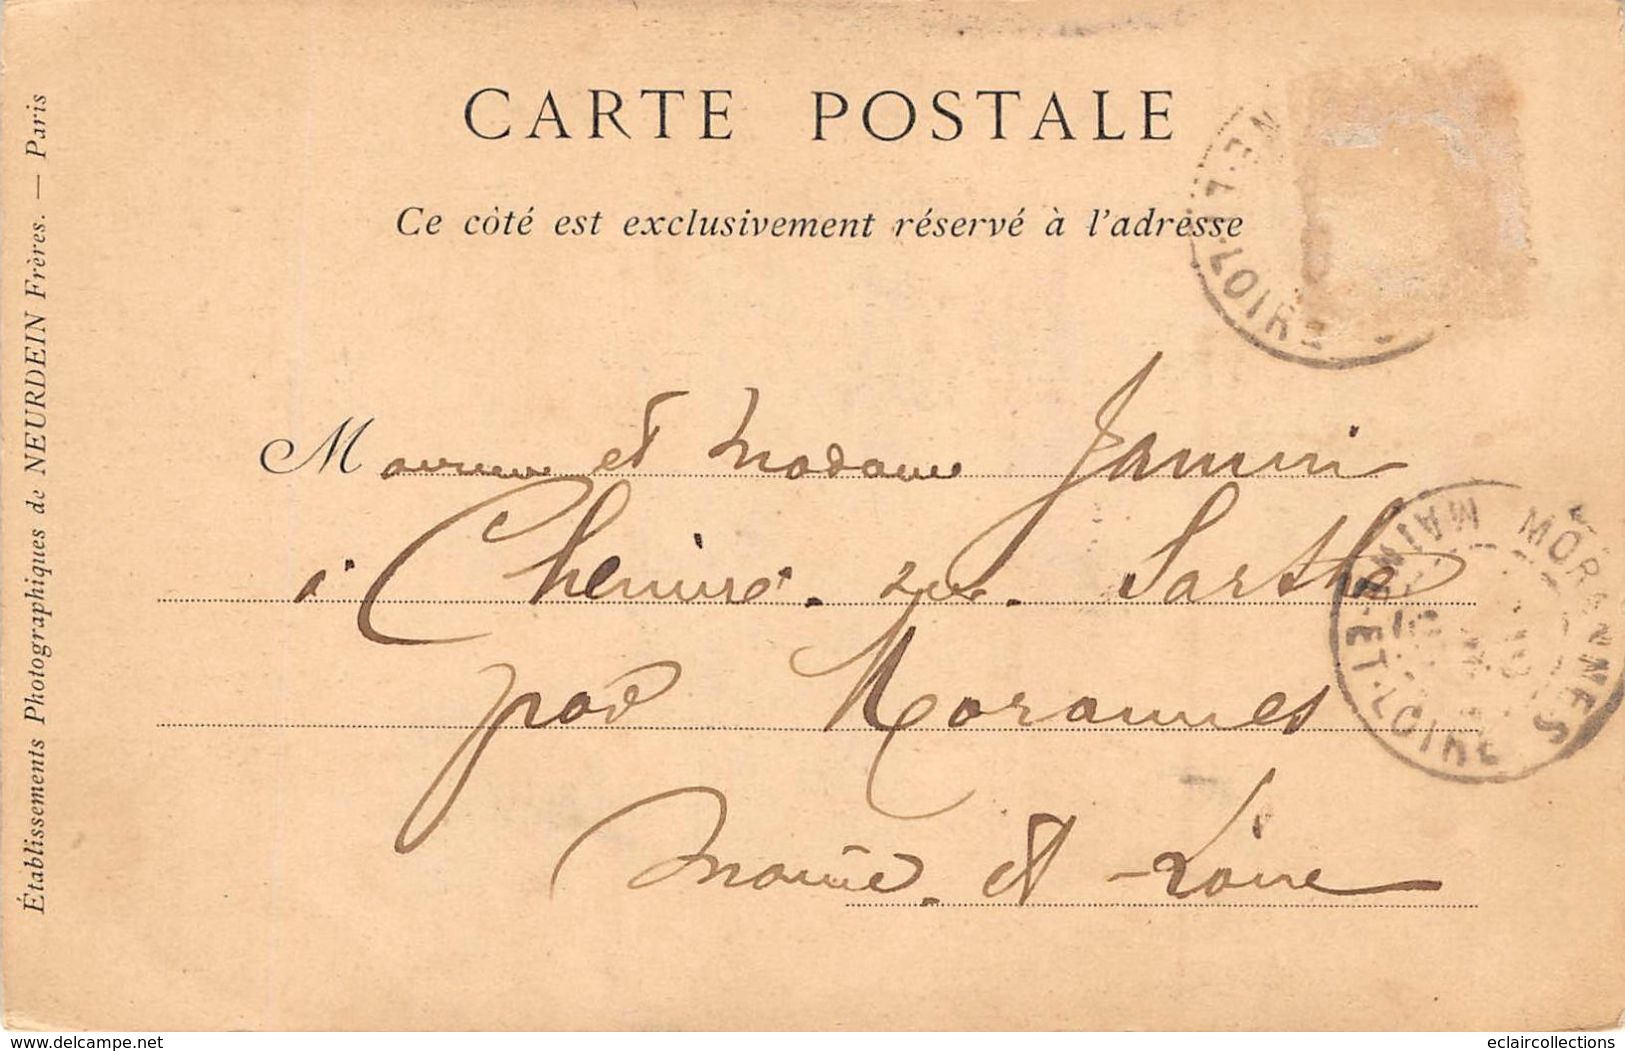 CARTE POSTALE
Ce côté est exclusivement réservé à l'adresse
Établissements Photographiques de NEURDEIN Frères. — Paris
Monsieur et Madame Jamin
à Chemiré-sur-Sarthe
par Morannes
Maine-et-Loire
NE-ET-LOIRE
MORANNES
MAINE-ET-LOIRE
www.delcampe.net
eclaircollections